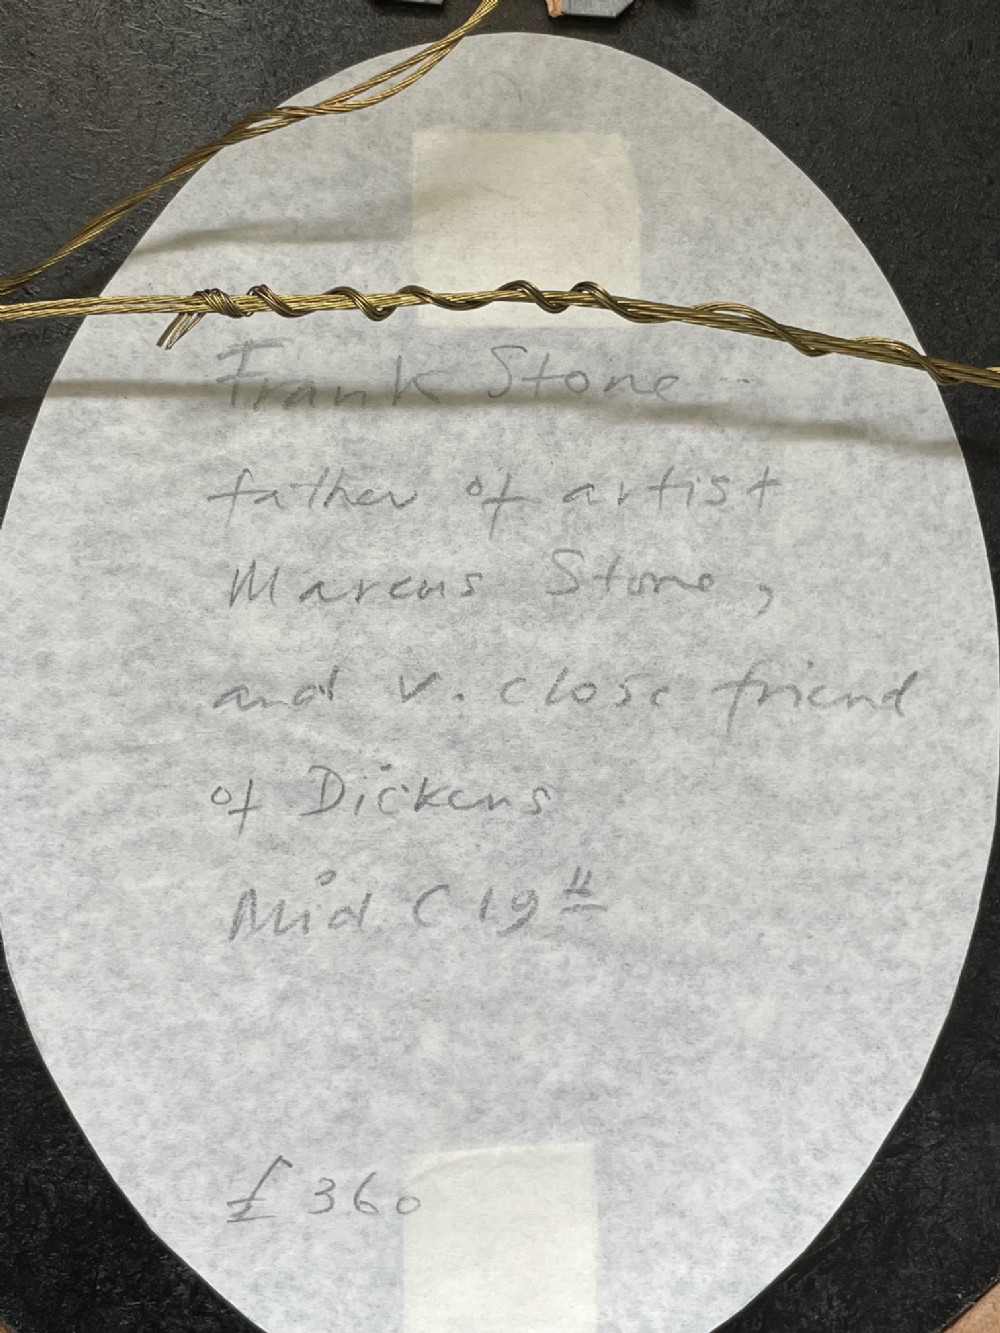 Frank Stone
father of artist
Marcus Stone,
and v. close friend
of Dickens
Mid C 19th
£360